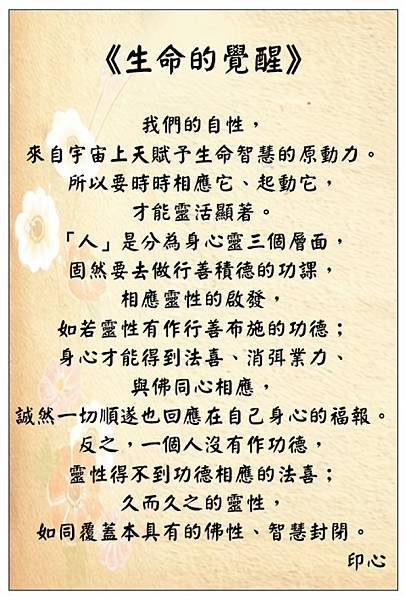 《生命的覺醒》
我們的自性，
來自宇宙上天賦予生命智慧的原動力。
所以要時時相應它、起動它，
才能靈活顯著。
「人」是分為身心靈三個層面，
固然要去做行善積德的功課，
相應靈性的啟發，
如若靈性有作行善布施的功德；
身心才能得到法喜、消弭業力、
與佛同心相應，
誠然一切順遂也回應在自己身心的福報。
反之，一個人沒有作功德，
靈性得不到功德相應的法喜；
久而久之的靈性，
如同覆蓋本具有的佛性、智慧封閉。
印心